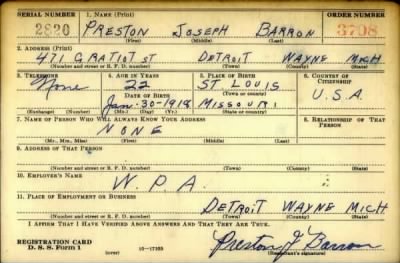 SERIAL NUMBER 1. NAME (Print) ORDER NUMBER
2820 PRESTON JOSEPH BARRON 3708
(First) (Middle) (Last)
2. ADDRESS (Print)
471 GRATIOT ST DETROIT WAYNE MICH
(Number and street or R. F. D. number) (Town) (County) (State)
3. TELEPHONE 4. AGE IN YEARS 5. PLACE OF BIRTH 6. COUNTRY OF CITIZENSHIP
None 22 ST LOUIS
DATE OF BIRTH (Town or county) U.S.A.
Jan-30-1918 MISSOURI
(Exchange) (Number) (Mo.) (Day) (Yr.) (State or country)
7. NAME OF PERSON WHO WILL ALWAYS KNOW YOUR ADDRESS 8. RELATIONSHIP OF THAT PERSON
NONE
(Mr., Mrs., Miss) (First) (Middle) (Last)
9. ADDRESS OF THAT PERSON
(Number and street or R. F. D. number) (Town) (County) (State)
10. EMPLOYER'S NAME
W.P.A.
11. PLACE OF EMPLOYMENT OR BUSINESS
DETROIT WAYNE MICH
(Number and street or R. F. D. number) (Town) (County) (State)
I AFFIRM THAT I HAVE VERIFIED ABOVE ANSWERS AND THAT THEY ARE TRUE.
REGISTRATION CARD
D. S. S. Form 1 (over) 16-17105 Preston J Barron
(Registrant's signature)